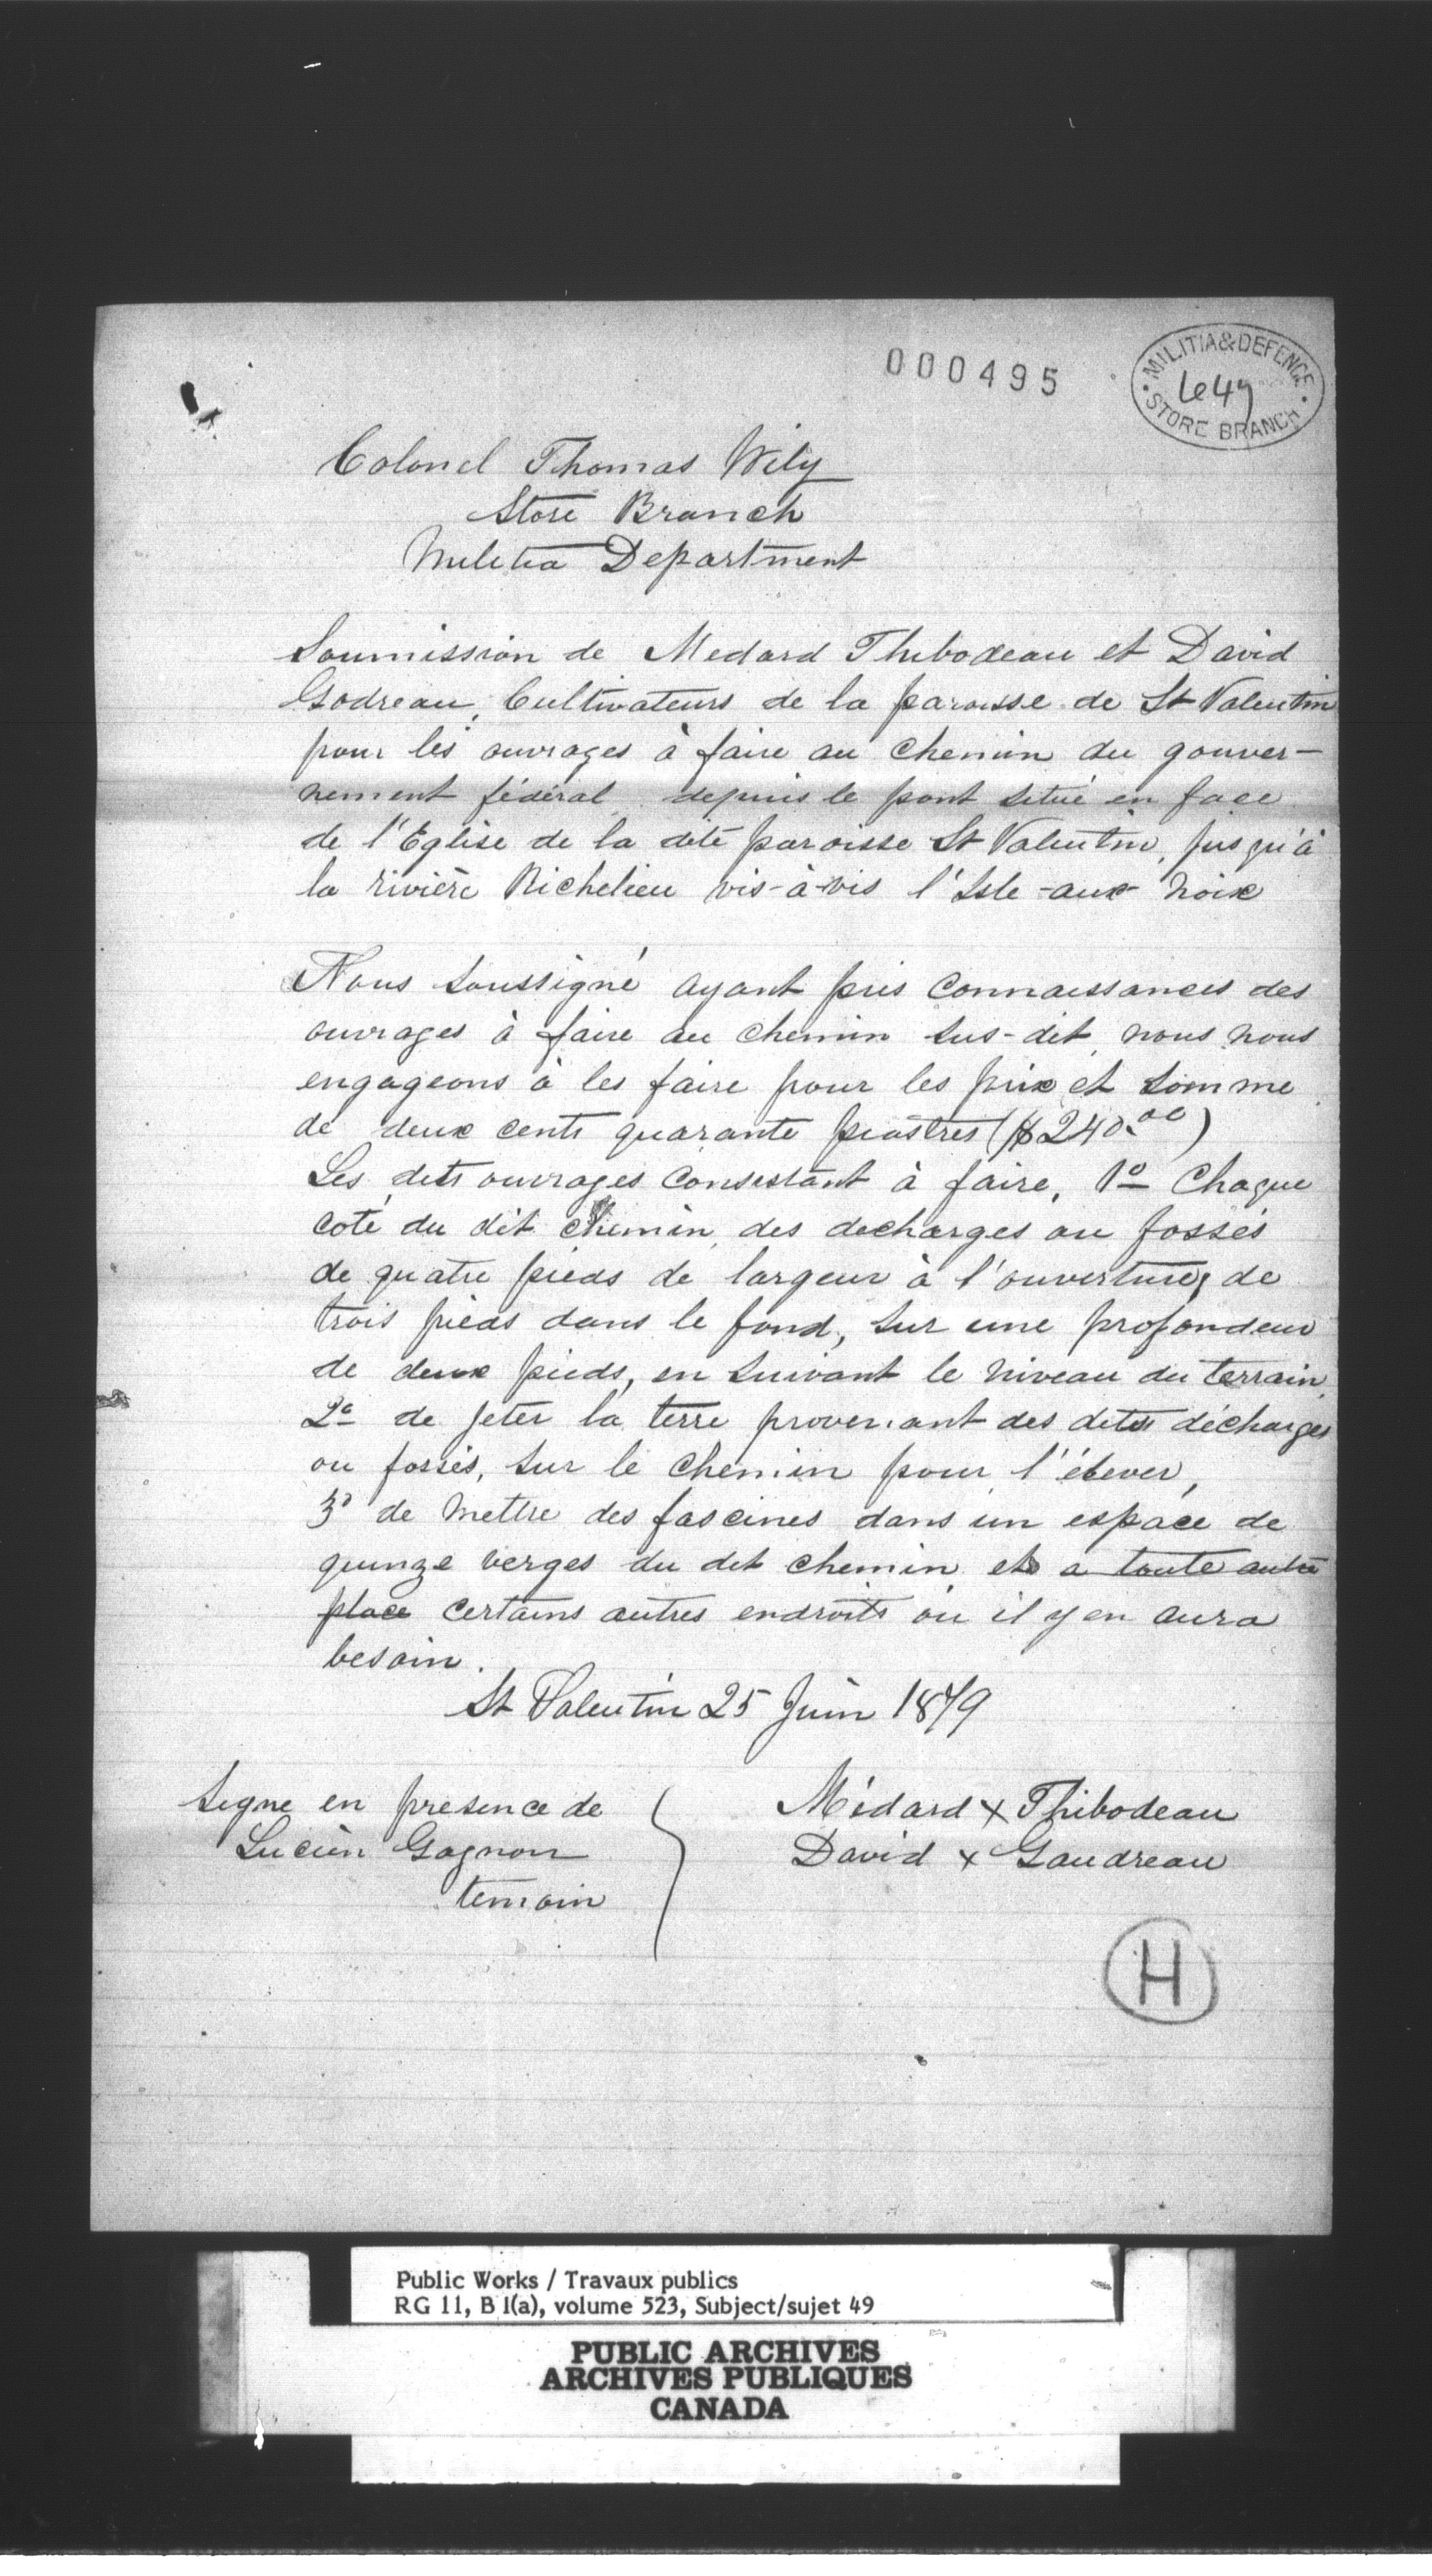 000495
MILITIA & DEFENCE
STORE BRANCH
Colonel Thomas Wily
Store Branch
Militia Department
Soumission de Medard Thibodeau et David
Godreau, Cultivateurs de la paroisse de St Valentin
pour les ouvrages à faire au chemin du gouver-
nement fédéral depuis le pont situé en face
de l'Eglise de la dite paroisse St Valentin, jusqu'à
la rivière Richelieu vis-à-vis l'Isle-aux-Noix
Nous soussigné ayant pris connaissances des
ouvrages à faire au chemin sus-dit, nous nous
engageons à les faire pour les prix et somme
de deux cents quarante piastres ($240.00)
Les dits ouvrages consistant à faire, 1o Chaque
coté du dit chemin, des decharges ou fossés
de quatre pieds de largeur à l'ouverture, de
trois pieds dans le fond, sur une profondeur
de deux pieds, en suivant le niveau du terrain
2o de jeter la terre provenant des dites décharges
ou fossés, sur le chemin pour l'élever,
3o de mettre des fascines dans un espace de
quinze verges du dit chemin et a toute autre
place certains autres endroits où il y en aura
besoin.
St Valentin 25 Juin 1879
Signe en presence de
Lucien Gagnon
temoin
Médard x Thibodeau
David x Gaudreau
H
Public Works / Travaux publics
RG 11, B 1(a), volume 523, Subject/sujet 49
PUBLIC ARCHIVES
ARCHIVES PUBLIQUES
CANADA